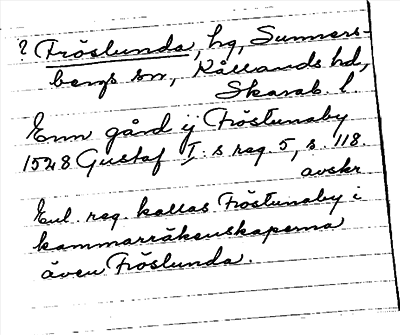 ? Fröslunda, hg, Sunners-
bergs sn, Kållands hd,
Skarab. l.
Enn gård ij Fröstunaby
1528 Gustaf I:s reg. 5, s. 118.
avskr
Enl. reg. kallas Fröstunaby i
kammarräkenskaperna
även Fröslunda.